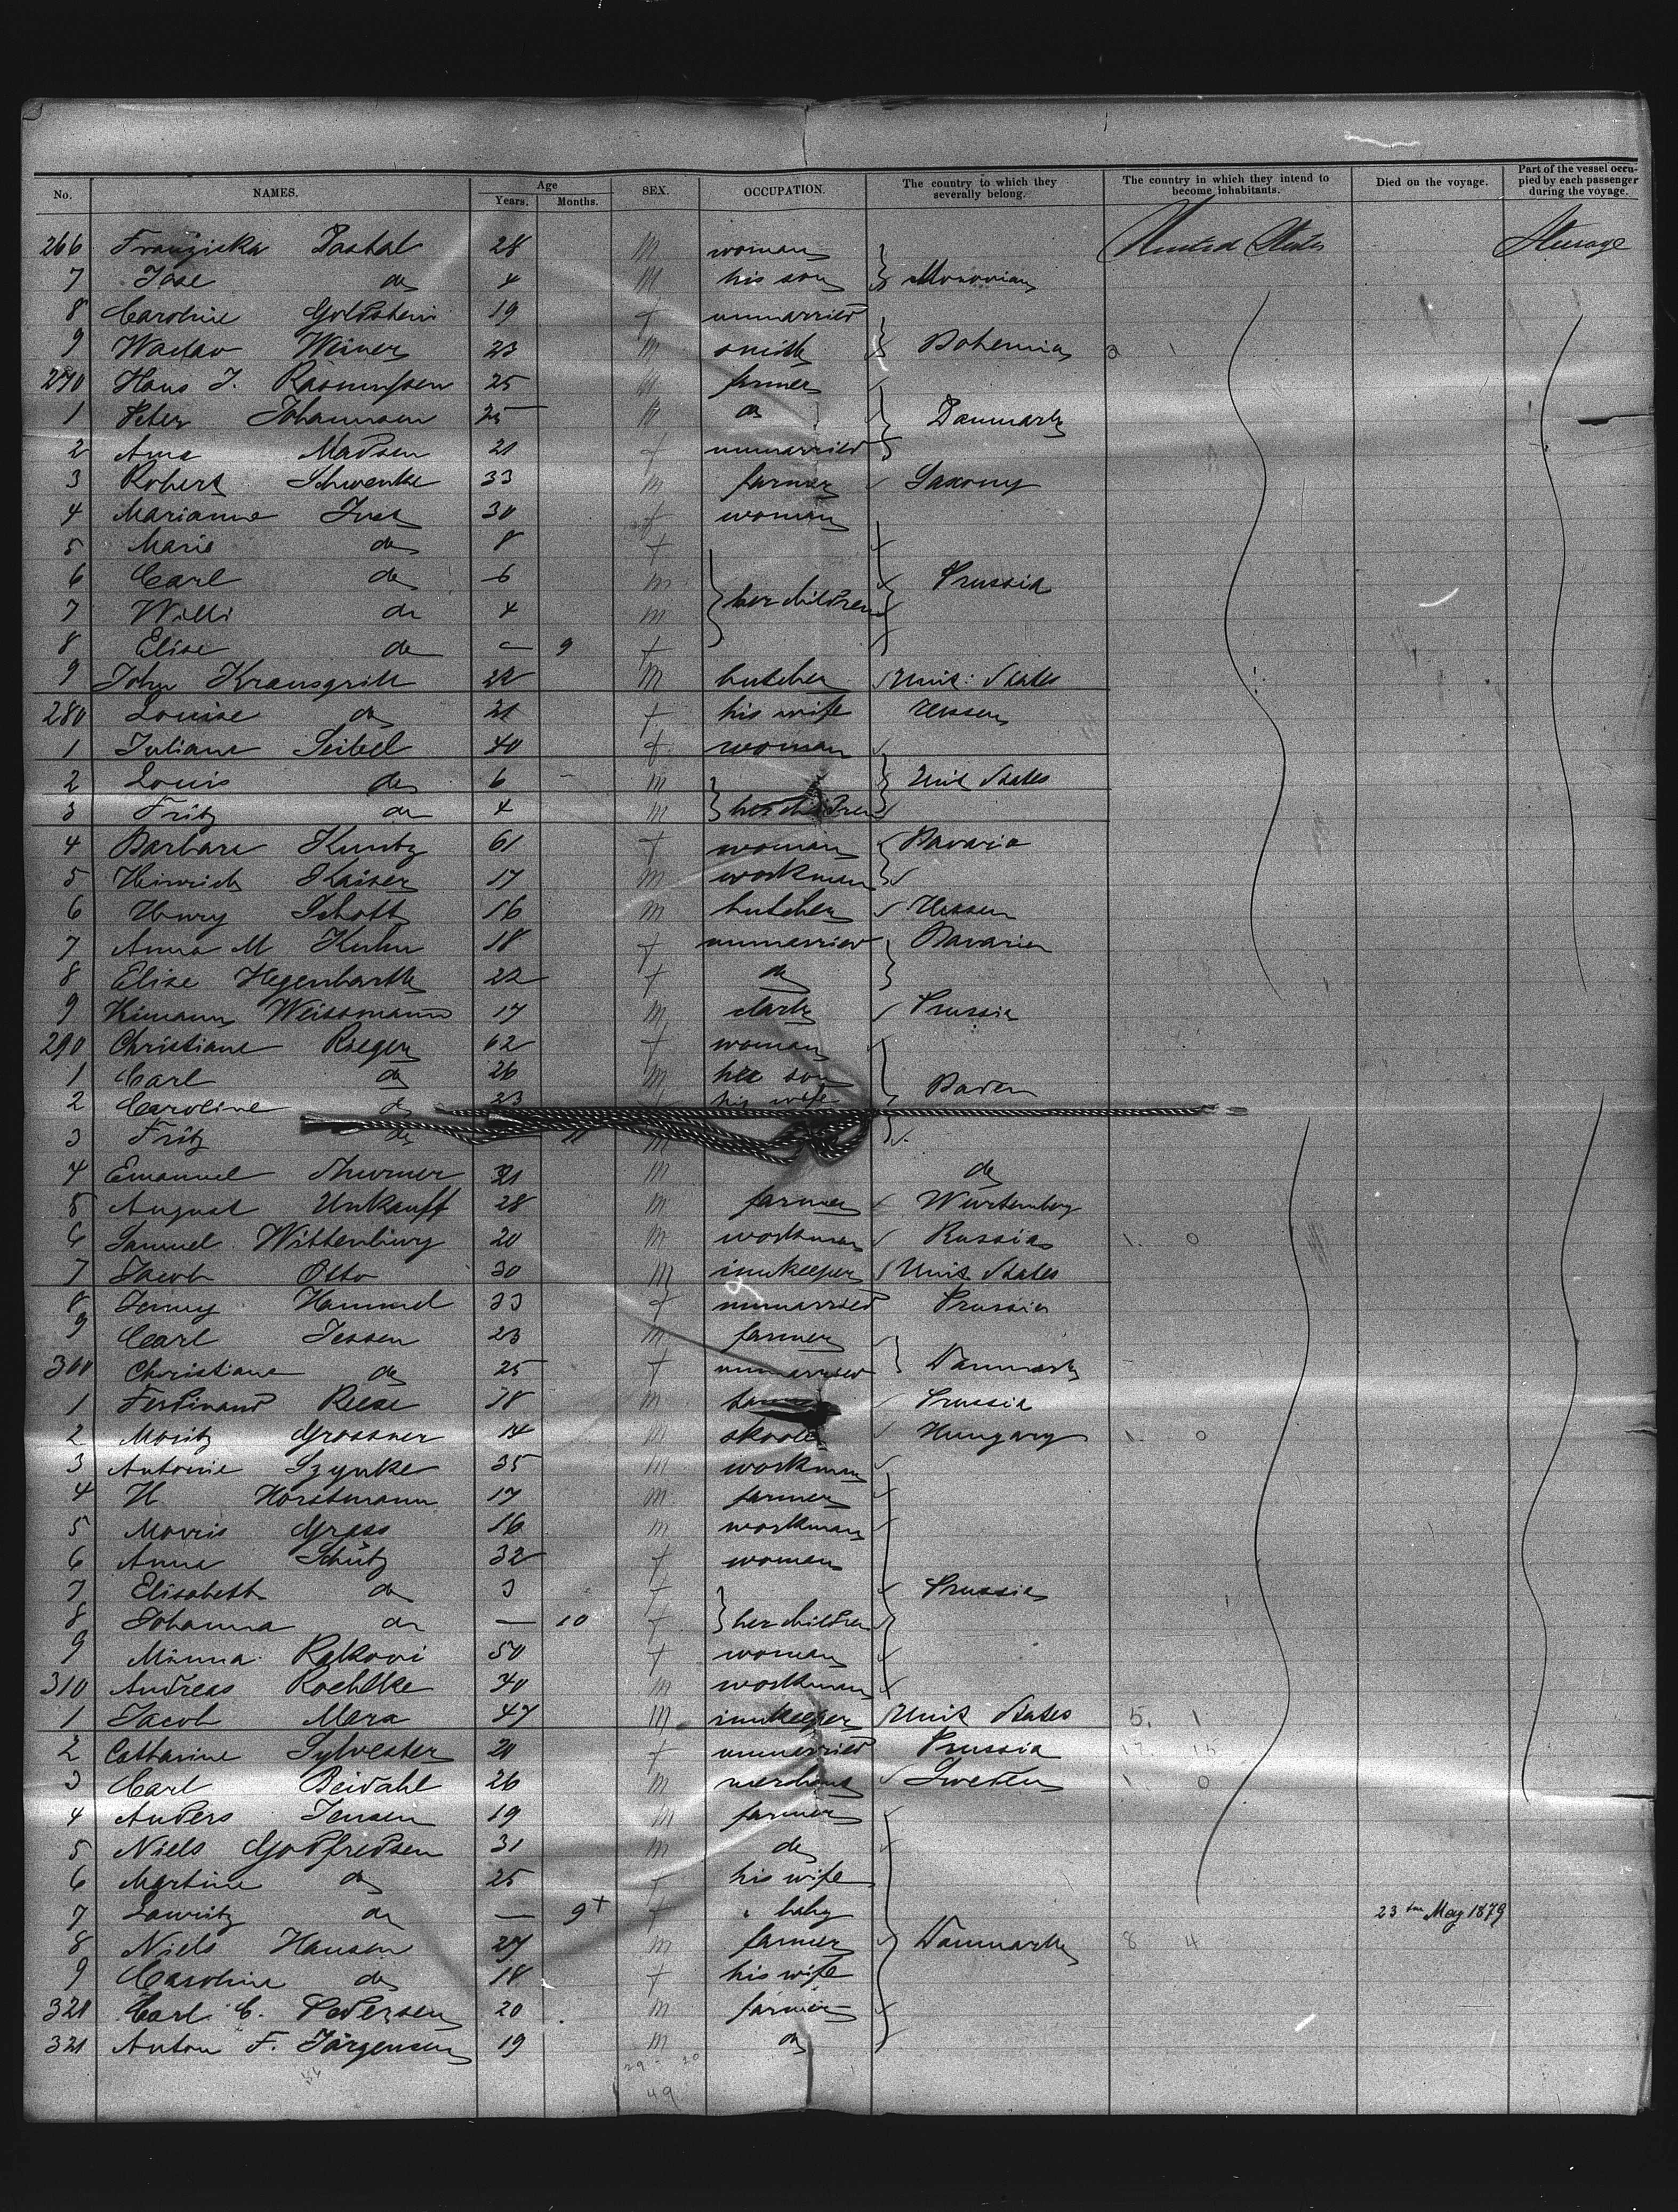 No. NAMES. Age Years. Months. SEX. OCCUPATION. The country to which they severally belong. The country in which they intend to become inhabitants. Died on the voyage. Part of the vessel occupied by each passenger during the voyage.
266 Franziska Pastal 28 m woman United States Steerage
7 Jose do 4 m his son
8 Caroline Goldstein 19 f unmarried
9 Waclav Weiner 23 m smith Bohemia
270 Hans J. Rasmussen 25 m farmer
1 Peter Johannsen 25 m do Danmark
2 Ama Madsen 21 f unmarried
3 Robert Schwenke 33 m farmer Saxony
4 Marianne 30 f woman
5 Marie do 8 f
6 Carl do 6 m Prussia
7 Willi do 4 m her children
8 Elise do — 9 f
9 John Kransgrill 22 m butcher Unit: States
280 Louise do 21 f his wife Hessen
1 Juliane Seibel 40 f woman
2 Louis do 6 m Unit States
3 Fritz do 4 m her children
4 Barbara Kuntz 61 f woman Bavaria
5 Heinrich Kaiser 17 m workman
6 Henry Schott 16 m butcher Hessen
7 Anna M Kuhn 18 f unmarried Bavaria
8 Elise Hegenbarth 22 f do
9 Weissmann 17 m clark Prussia
290 Christiane Rieger 62 f woman
1 Carl do 26 m her son Baden
2 Caroline do 23 his wife
3 Fritz do 11 m
4 Emanuel Thurner 31 m do
5 August Unkauff 28 m farmer Wurtemberg
6 Samuel Wittenburg 20 m workman Russia 1. 0
7 Jacob Otto 30 m innkeeper Unit States
8 Jenny Hammel 33 f unmarried Prussia
9 Carl Jessen 23 m farmer
300 Christiane do 25 f unmarried Danmark
1 Ferdinand Reese 18 m Prussia
2 Moritz Grossner 14 m Hungary 1. 0
3 Antonie Szynke 35 m workman
4 H Horstmann 17 m farmer
5 Morris Grass 16 m workman
6 Anna Schütz 32 f woman
7 Elisabeth do 3 f Prussia
8 Johanna do — 10 f her children
9 Minna Rakovi 50 f woman
310 Andreas Roehlke 40 m workman
1 Jacob Mera 47 m innkeeper Unit States 5. 1
2 Catharine Sylvester 20 f unmarried Prussia 17. 15
3 Carl Beidahl 26 m merchant Sweden 1 0
4 Anders Jensen 19 m farmer
5 Niels Godfredsen 31 m do
6 Martine do 25 f his wife
7 Lauritz do — 9+ f " baby 23 ten May 1879
8 Niels Hansen 27 m farmer Danmark 8 4
9 Caroline do 18 f his wife
320 Carl C. Pedersen 20 m farmer
321 Anton F. Jörgensen 19 m do
29 20
49